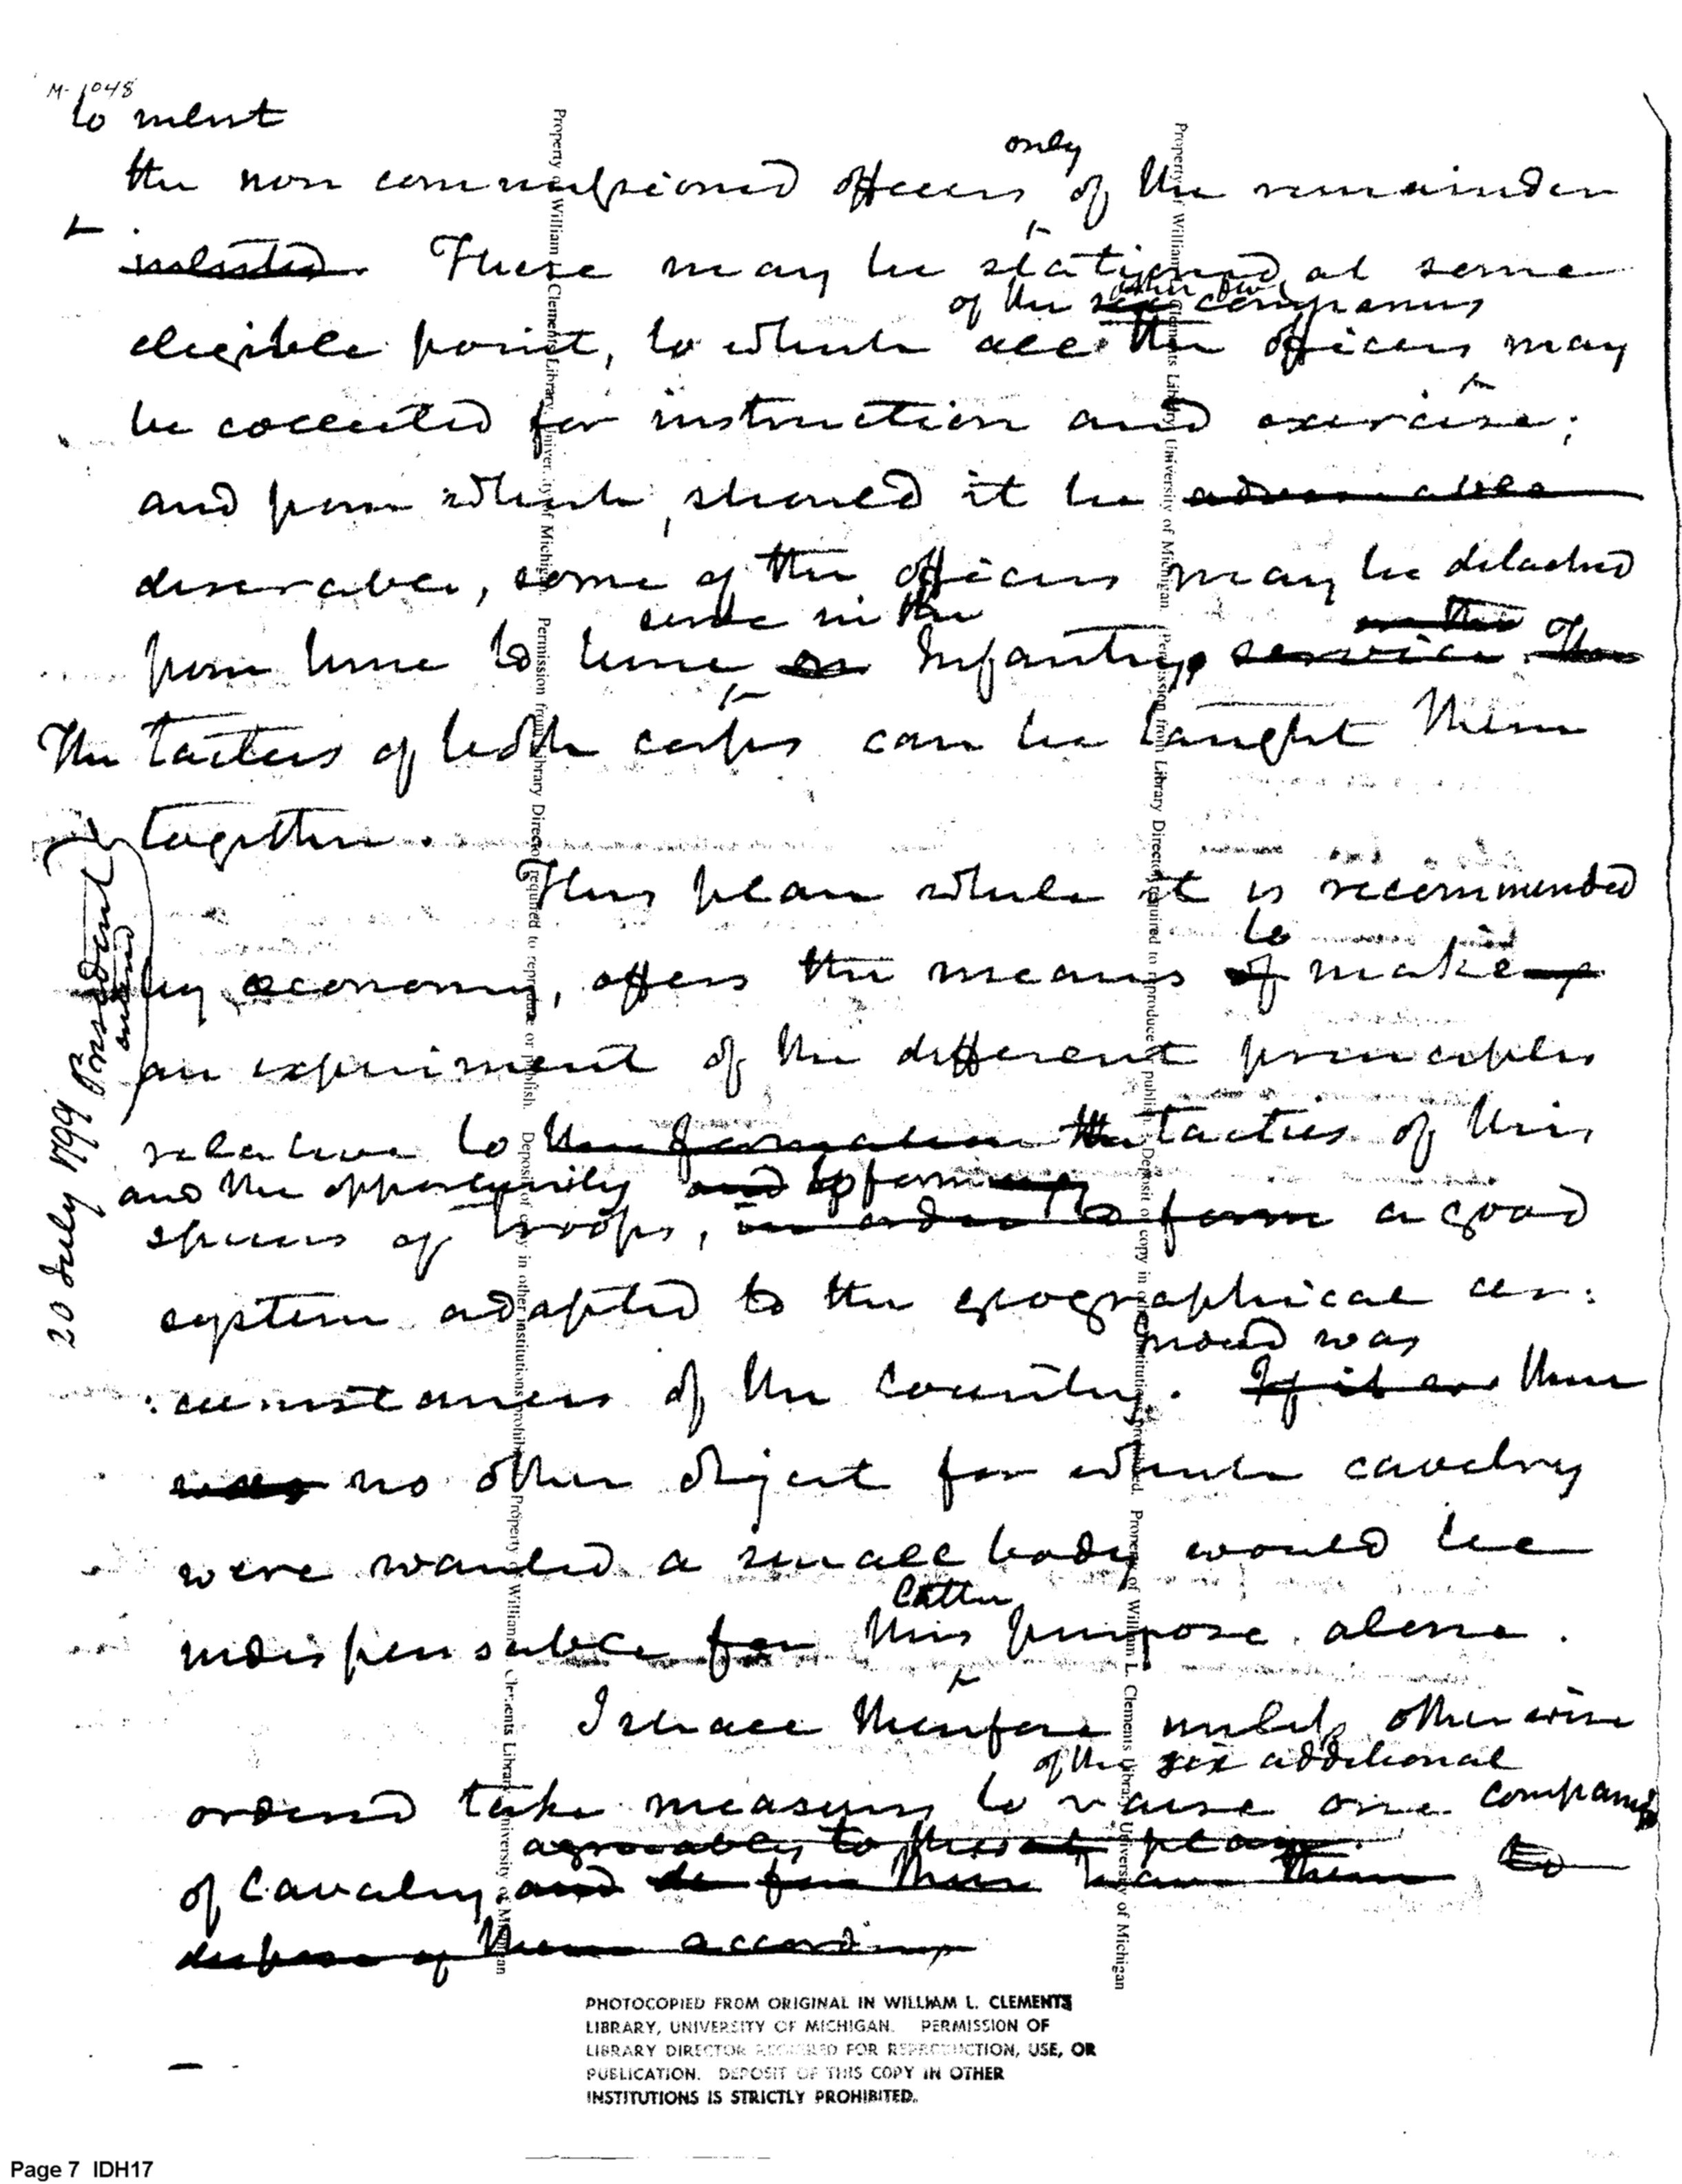 M-1048
to inlist
only
the non commissioned officers of the remainder
inlisted. These may be stationed at some
of the six other five companies
eligible point, to which all the officers may
be collected for instruction and exercise;
and from which, should it be adviseable
desireable, some of the officers may be detached
serve in the
from time to time on Infantry service. The
The tactics of both corps can be taught them
together.
This plan while it is recommended
to
by œconomy, offers the means of make
an experiment of the different principles
relative to the formation the tactics of this
and the opportunity and of forming
species of troops, in order to form a good
system adapted to the geographical cir:
Indeed was
:cumstances of the Country. If it there
was no other object for which cavalry
were wanted a small body would be
latter
indispensable for this purpose alone.
I shall therefore unless otherwise
of the six additional
ordered take measures to raise one companies
agreeably to the plan
of Cavalry and them to
dispose of them according
20 July 1799 President
Property of William L. Clements Library, University of Michigan. Permission from Library Director required to reproduce or publish. Deposit of copy in other institutions prohibited. Property of William L. Clements Library, University of Michigan
Property of William L. Clements Library, University of Michigan. Permission from Library Director required to reproduce or publish. Deposit of copy in other institutions prohibited. Property of William L. Clements Library, University of Michigan
PHOTOCOPIED FROM ORIGINAL IN WILLIAM L. CLEMENTS
LIBRARY, UNIVERSITY OF MICHIGAN. PERMISSION OF
LIBRARY DIRECTOR REQUIRED FOR REPRODUCTION, USE, OR
PUBLICATION. DEPOSIT OF THIS COPY IN OTHER
INSTITUTIONS IS STRICTLY PROHIBITED.
Page 7 IDH17